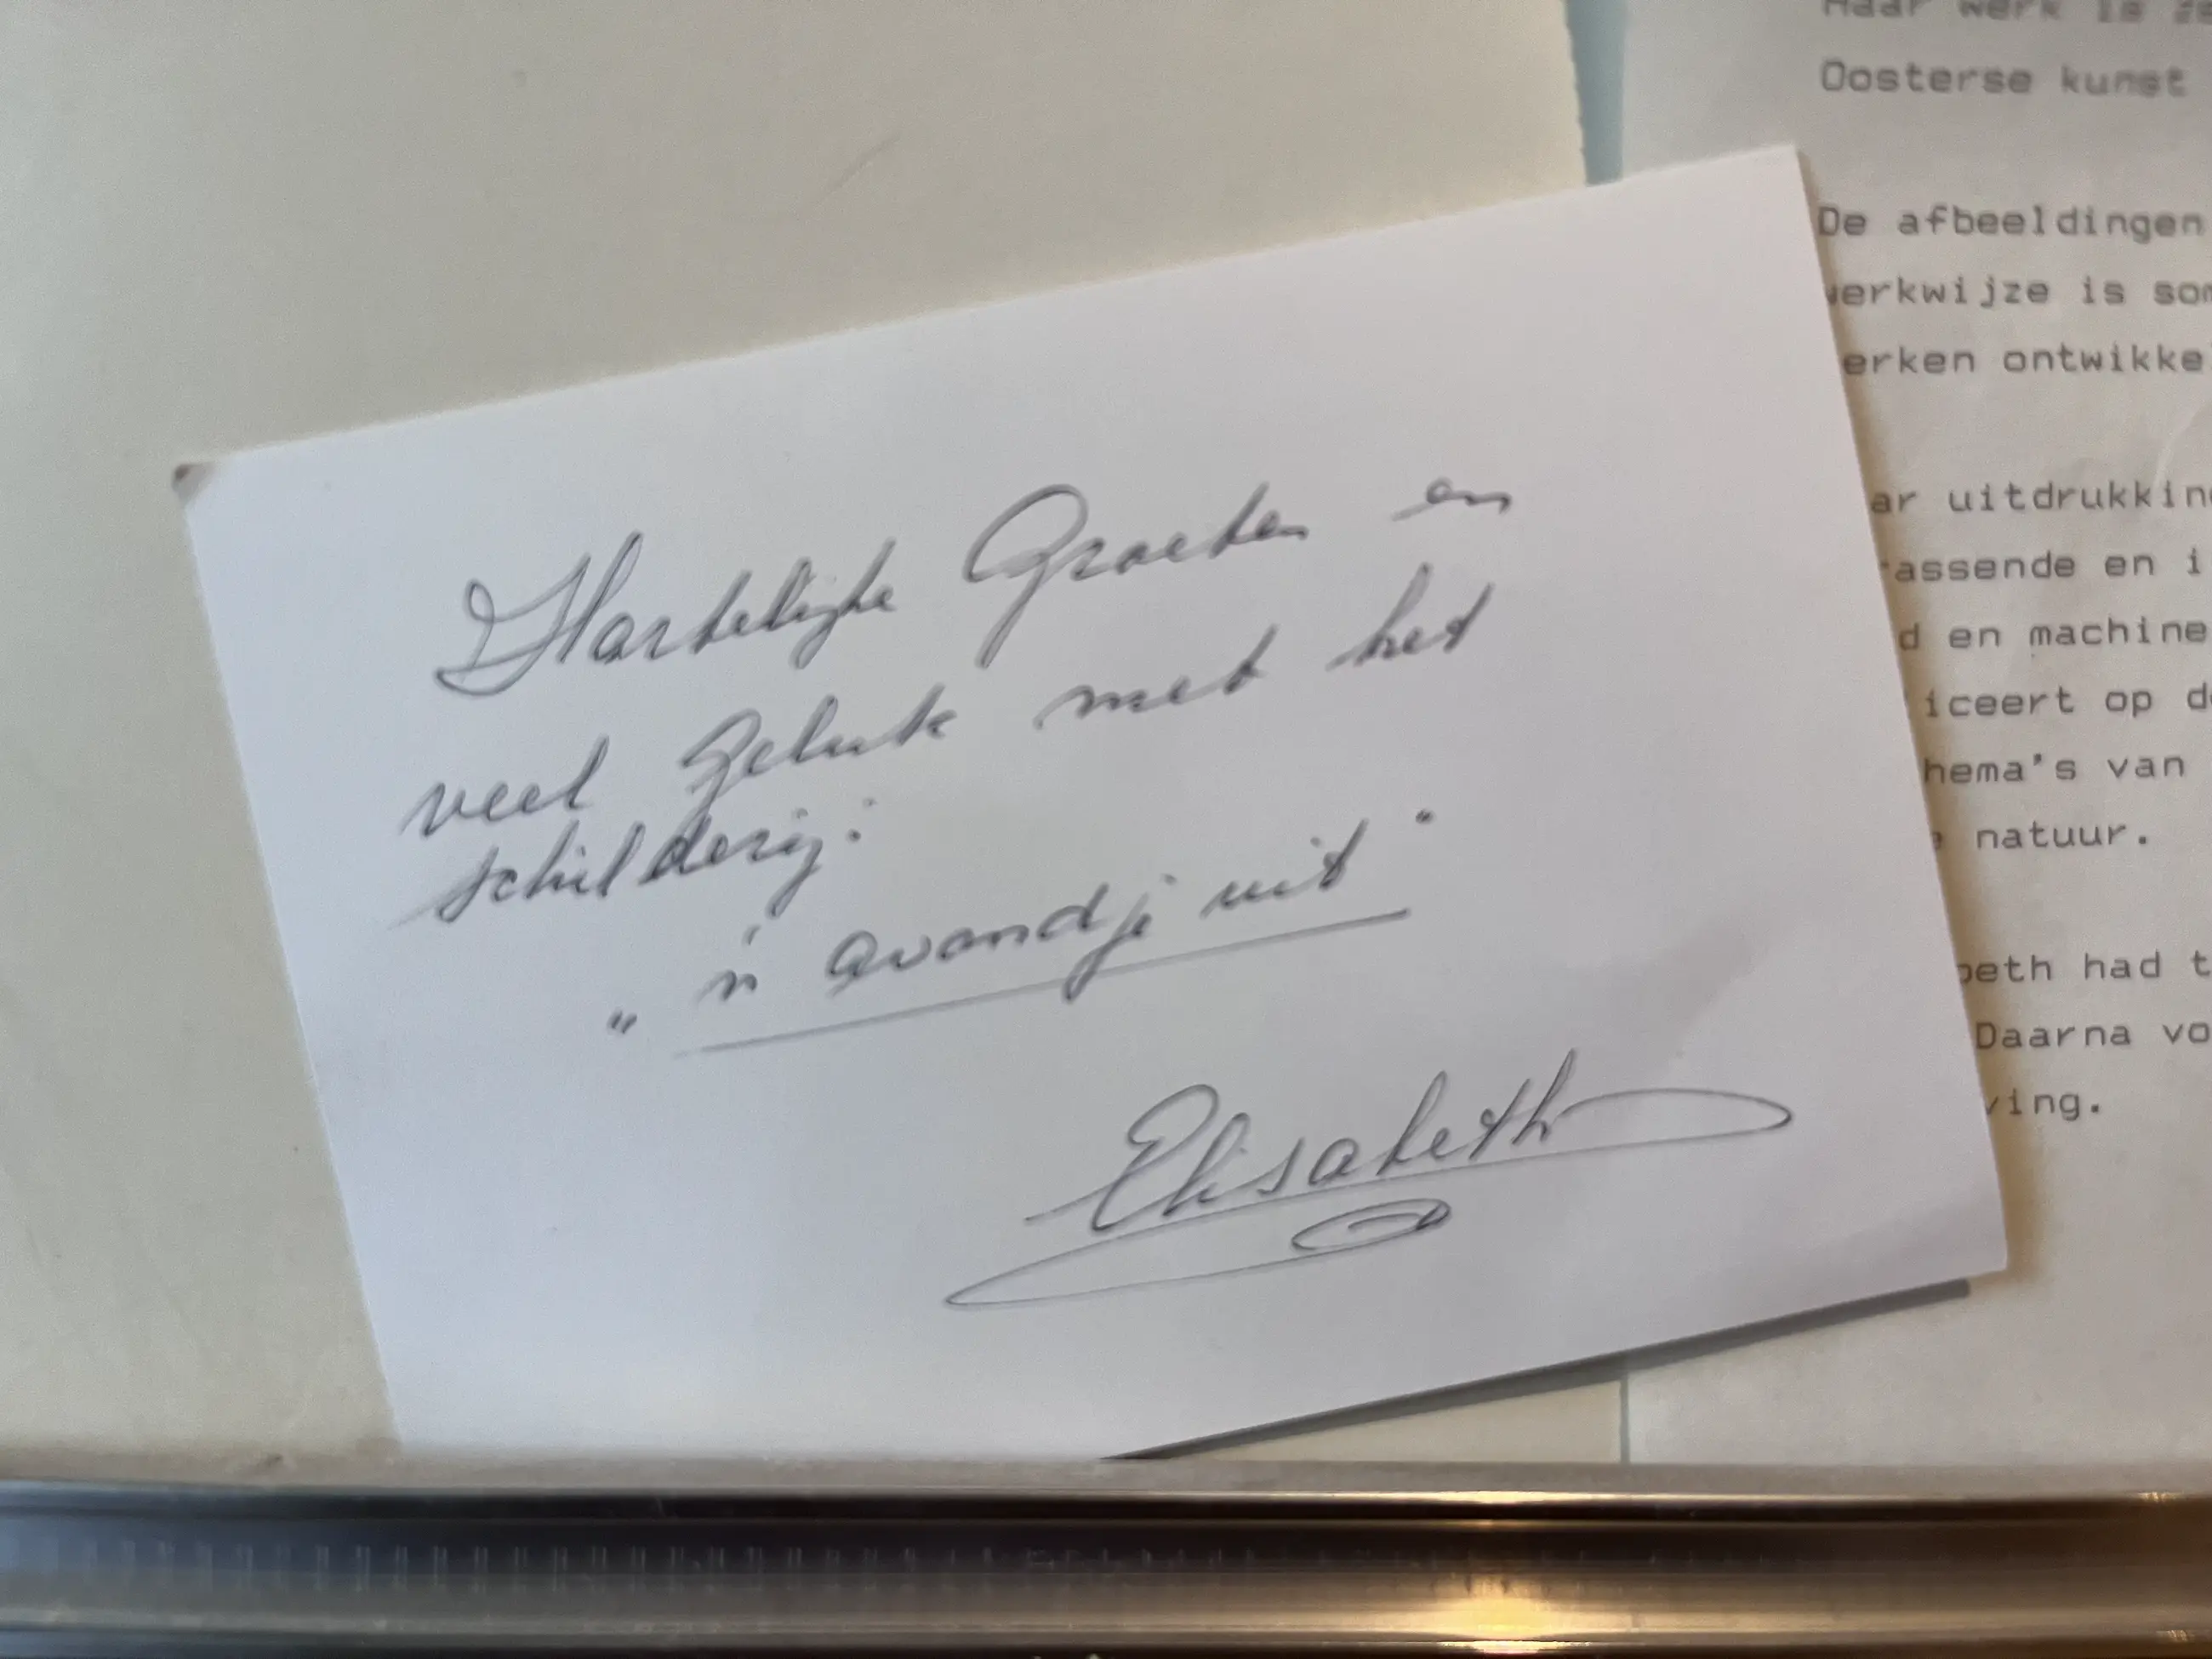 Hartelijke Groeten en
veel geluk met het
schilderij:
„ 'n avondje uit "
Elisabeth
Haar werk is
Oosterse kunst
De afbeeldingen
erkwijze is som
erken ontwikke
ar uitdrukkin
assende en i
d en machine
iceert op d
hema's van
natuur.
beth had t
Daarna vo
ving.